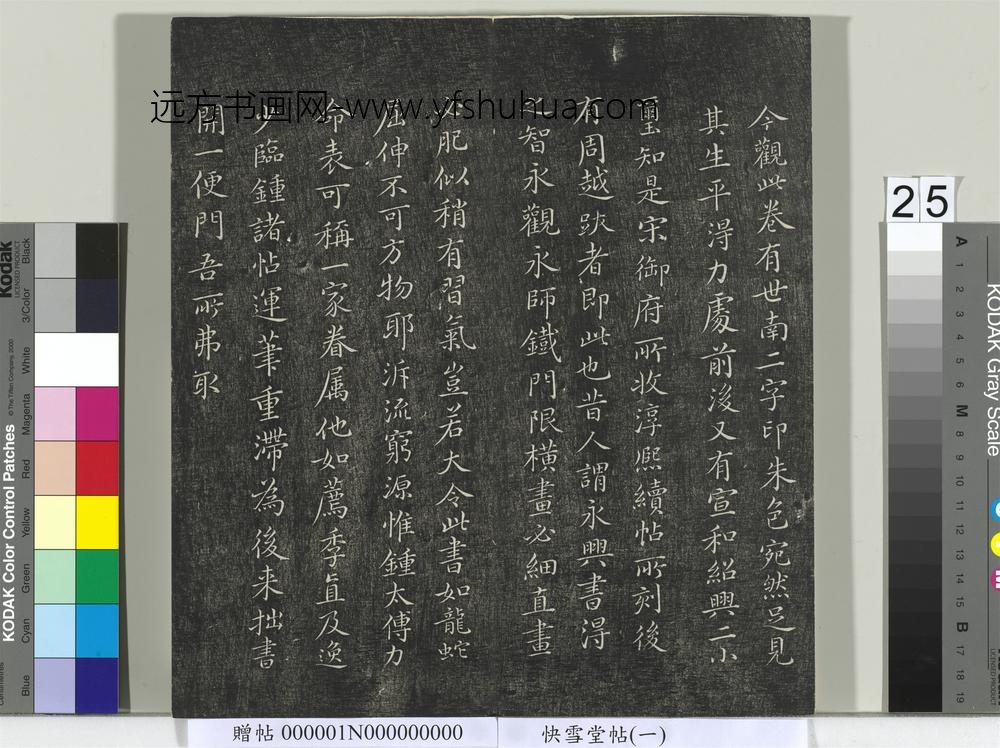 今觀此卷有世南二字印朱色宛然足見
其生平淂力處前後又有宣和紹興二小
璽知是宋御府所收淳熈續帖所刻後
有周越跋者即此也昔人謂永興書淂
智永觀永師鐵門限橫畫必細直畫
必肥似稍有習氣豈若大令此書如龍蛇
屈伸不可方物耶泝流窮源惟鍾太傅力
命表可稱一家眷属他如薦季直及逸
少臨鍾諸帖運筆重滯為後来拙書
開一便門吾所弗取
远方书画网-www.yfshuhua.com
贈帖 000001N000000000
快雪堂帖(一)
25
Kodak
LICENSED PRODUCT
© The Tiffen Company, 2000
KODAK Color Control Patches
Black
3/Color
White
Magenta
Red
Yellow
Green
Cyan
Blue
Centimetres
KODAK Gray Scale
A 1 2 3 4 5 6 M 8 9 10 11 12 13 14 15 B 17 18 19